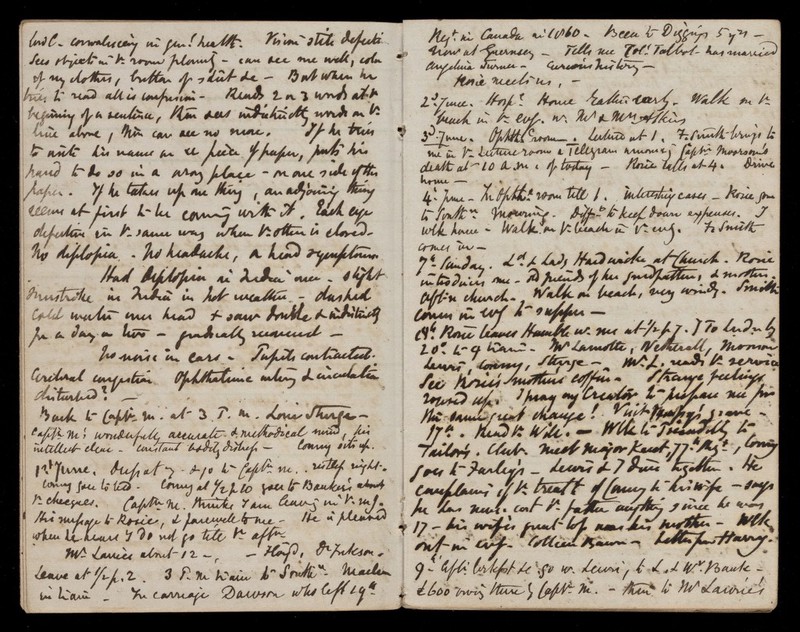 cord C - convalescing in gen! health. Vision still defective
Sees objects in the room plainly - can see me well, color
of my clothes, button of shirt &c - But when he
tries to read all is confusion - Reads 2 or 3 words at the
beginning of a sentence, then sees indistinctly words on the
line above, then can see no more. If he tries
to write his name on a piece of paper, puts his
hand to do so in a wrong place - on one side of the
paper. If he takes up one thing, an adjoining thing
seems at first to be coming with it. Each eye
defective in the same way when the other is closed -
No diplopia. No headache, or head symptoms
Had Diplopia in India once - slight
Sunstroke in India in hot weather - dashed
cold water over head & saw double & indistinctly
for a day or two - gradually recovered -
No noise in ears - Pupils contracted.
Cerebral congestion Ophthalmic artery & circulation
disturbed? -
Back to Captn M. at 3 P.M. Louis Sturge -
Captn M's wonderfully accurate & methodical mind, his
intellect clear - constant bodily distress - Conny sits up.
1st June. Up at 7 & go to Captn M. restless night -
Conny goes to bed - Conny at 1/2 p 10 goes to Bankers about
the cheques. Captn M. thinks I am leaving in the mg -
His message to Rosie, & farewell to me - He is pleased
when he hears I do not go till the aftn.
Mr Lawrie about 12 -, - Hoyd, Dr Jackson -
Leave at 1/2 p. 2. 3 P.M. train to Southn
in train - In carriage Dawson who left 19th
Regt in Canada in 1860 - Been to Diggings 5 yrs -
now at Guernsey - Tells me Col! Talbot has married
Angelina Turner - Curious history -
Rosie meets us,
2d June. Hospl Home rather early. Walk on the
beach in the evg. w. Mr & Mrs
3d June. Ophthl room. Lecture at 1. F. Smith brings to
me in the Lecture room a Telegram announcing Captn Moorsom's
death at 10 a.m. of today - Rosie calls at 4. Drive
home -
4th June - In Ophthl room till 1. interesting cases - Rosie gone
to Southn Mourning. Difft to keep down expenses. I
walk home - Walk on the beach in the evg. F. Smith
comes in -
7th Sunday. Ld & Lady Hardwicke at Church. Rosie
introduces me - Old friends of her grandfather, & mother.
After church. Walk on beach, very windy. Smith
comes in evg to supper -
8th. Rosie leaves Hamble w. me at 1/2 p 7. To Lndn by
20m to 9 train - Mr Lamotte, Wetherall, Moorsom
Lewis, Conny, Sturge - Mr L. reads the service
See Rosie's mother's coffin - Strange feelings
roused up. I pray my Creator to prepare me for
the same great change! Visit grave -
Read the Will. - Walk to Piccadilly to
Tailors. Club. Meet Major Kent, 77th Regt, Conny
goes to Farley's - Lewis & I dine together. He
complains of the treatt of Conny to his wife - says
he has never cost the father anything since he was
17 - his wife's great love was his mother - Walk
out in evg. Colleen Bawn - Letter from Harry.
9 - After brkfst &c go w. Lewis, to L. & Wr Bank -
£600 owing there by Captn M. - then to Mr Lawrie's